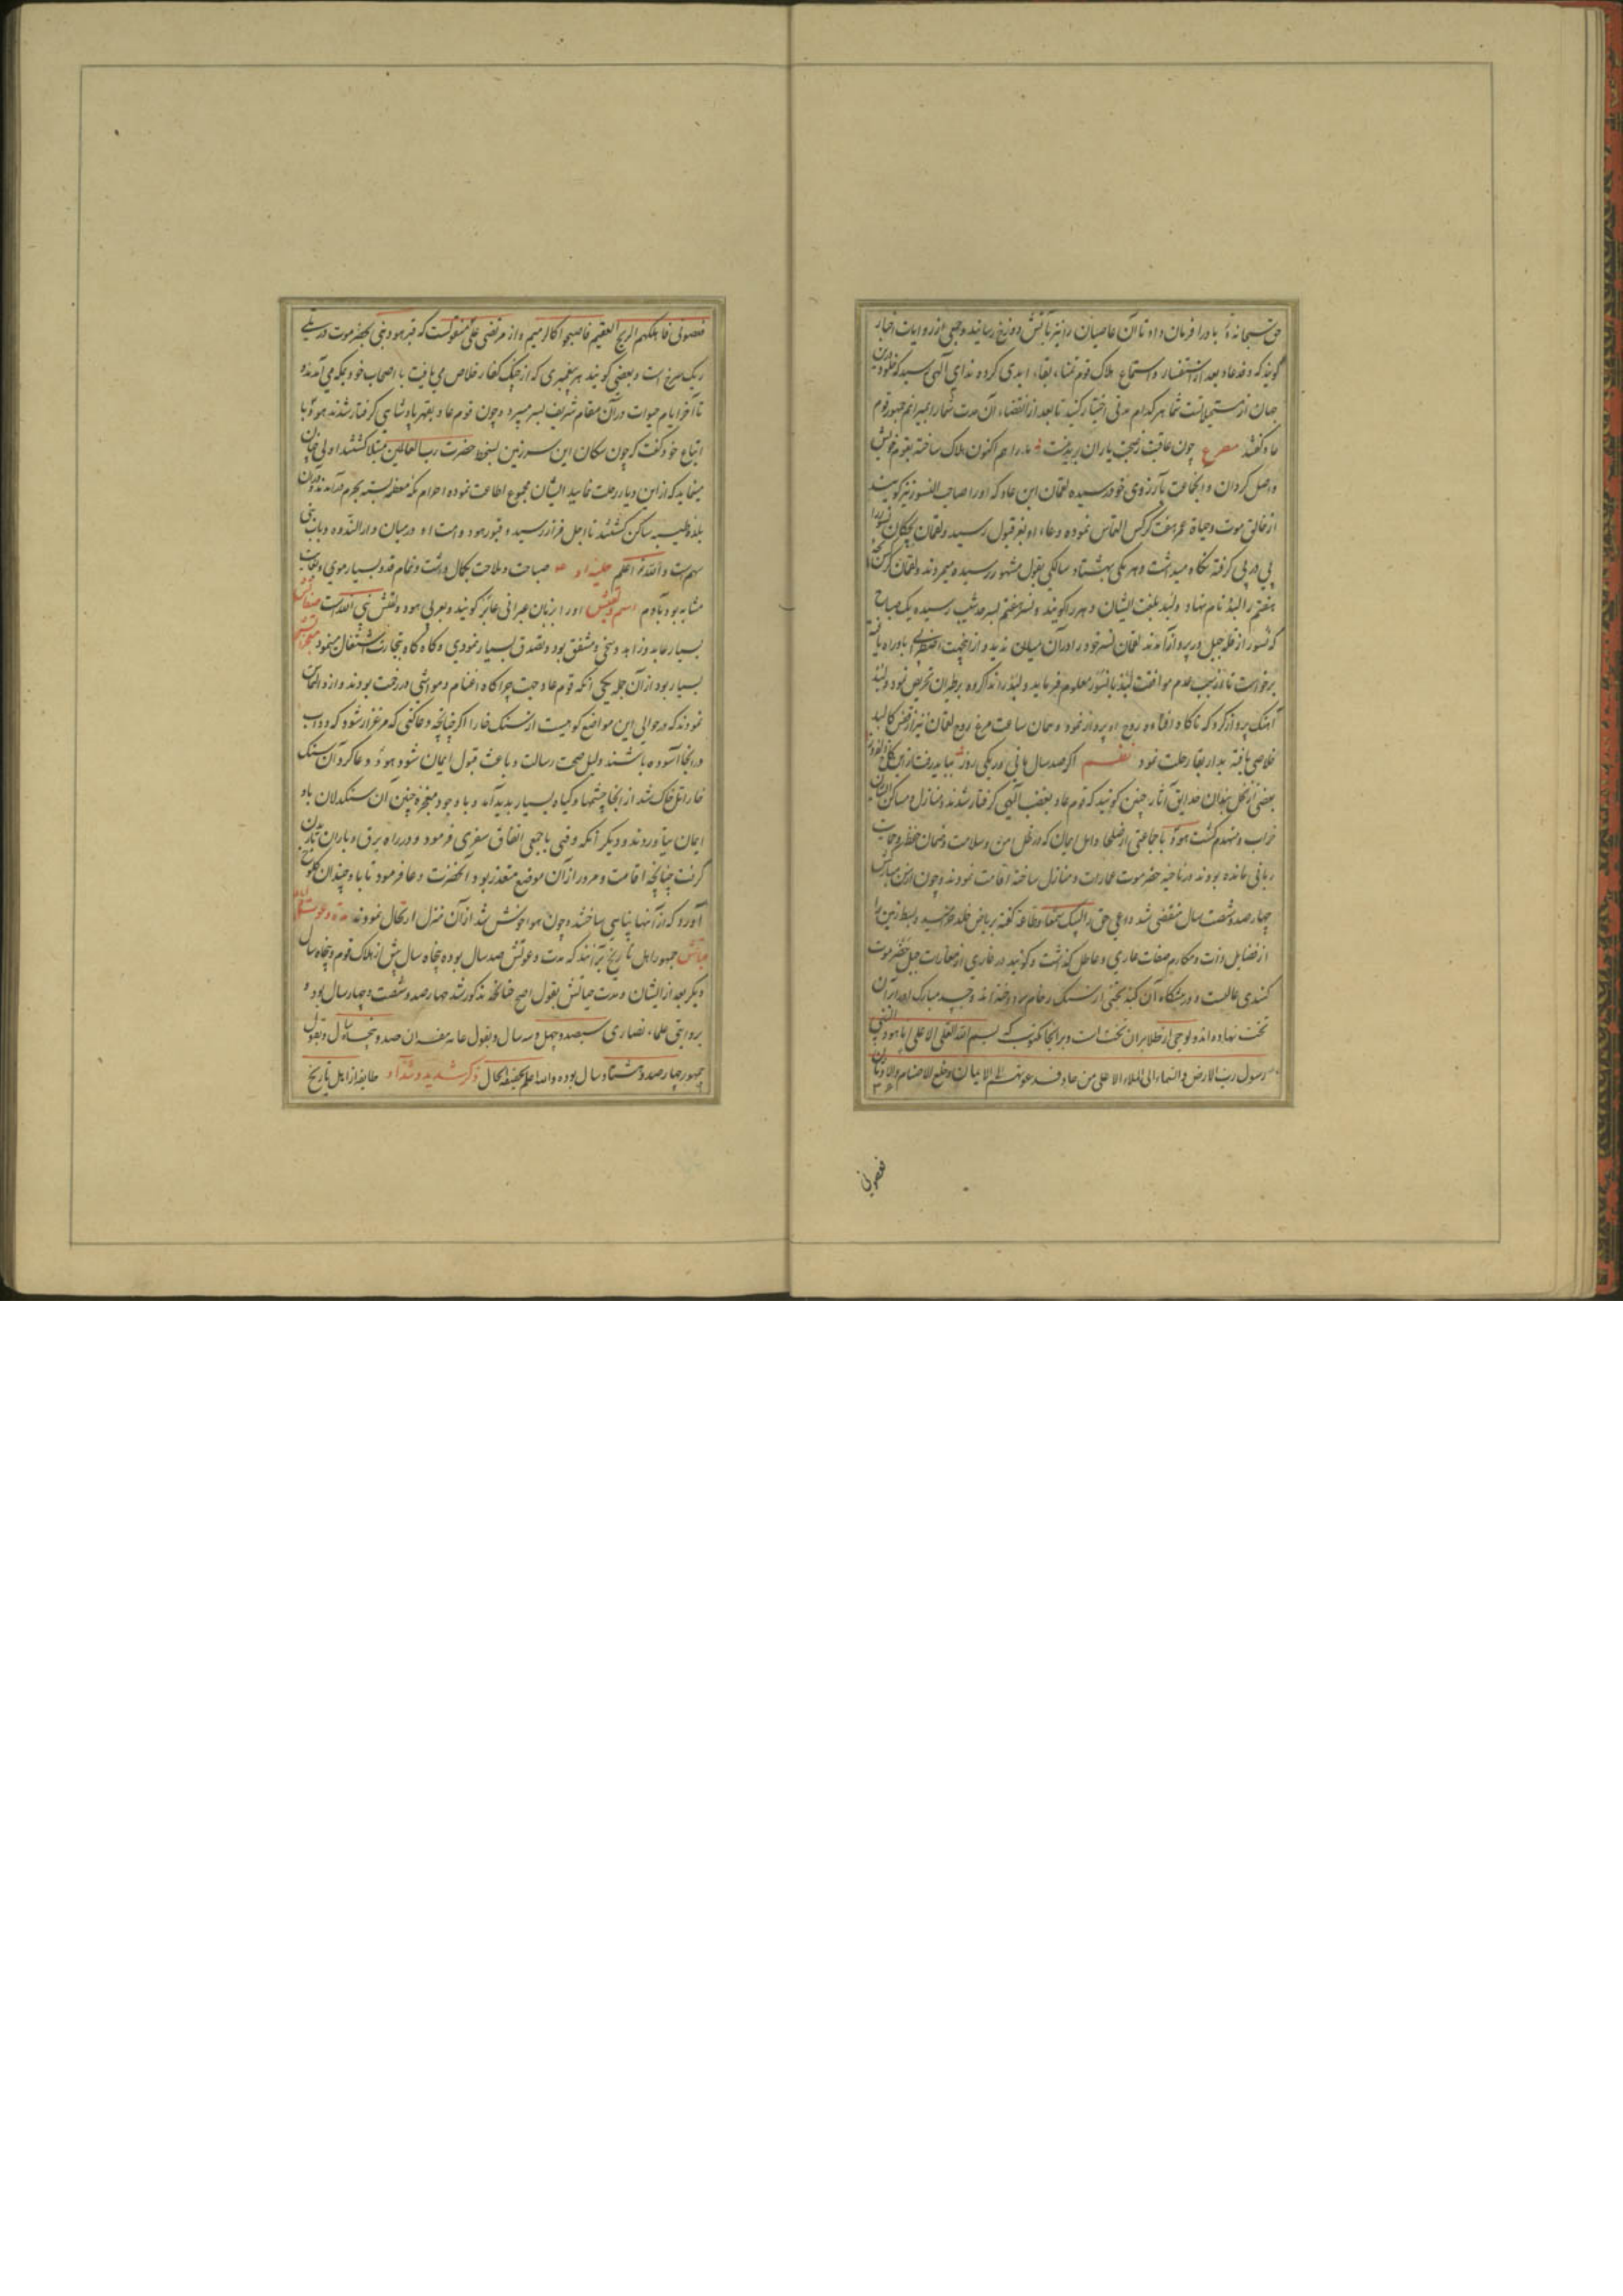 حق سبحانه و تعالی باد را فرمان داد تا آن عاصیان را نیز بآتش دوزخ رسانید و جمعی از روایات اخبار
گویند که وفد عاد بعد از استفسار و استماع هلاک قوم تمناء بقاء ابدی کرده ندای الهی رسید که خلود درین
جهان از مستحیلاتست شما هر کدام مدتی اختیار کنید تا بعد از انقضاء آن مدت شما را بمیرانم جمهور قوم
عاد گفتند مصرع چون عاقبت ز صحبت یاران بریدنست ما را هم اکنون هلاک ساخته بقوم خویش
واصل گردان و آن جماعت بآرزوی خود رسیده لقمان ابن عاد که او را صاحب النسور نیز گویند
از خالق موت و حیاة عمر هفت کرکس التماس نموده دعاء او بعز قبول رسید و لقمان بچکان نسور را
پی در پی گرفته نگاه میداشت و هر یکی بهشتاد سالگی بقول مشهور رسیده میمردند و لقمان کرکس
هفتم را لبد نام نهاد و لبد بلغت ایشان دهر را گویند و نسر هفتم بسر حد شیب رسیده یک صباح
که نسور از قله جبل در پرواز آمدند لقمان نسر خود را در آن میان ندید و از آن جهت اضطرابی باو راه یافته
برخواست تا از سبب عدم موافقت لبد با نسور معلوم فرماید و لبد را ندا کرده بر طیران تحریص نمود و لبد
آهنگ پرواز کرد که ناگاه افتاد و روح او پرواز نمود و همان ساعت مرغ روح لقمان نیز از قفس کالبد
خلاصی یافته بدار بقا رحلت نمود نظم اگر صد سال مانی ور یکی روز بباید رفت ازین کاخ دلفروز
بعضی از نخل بندان حدایق آثار چنین گویند که قوم عاد بغضب الهی گرفتار شدند و منازل و مساکن ایشان
خراب و منهدم گشت هود با جماعتی از صلحا و اهل ایمان که در ظل امن و سلامت و ضمان حفظ و حمایت
ربانی مانده بودند در ناحیه حضرموت عمارات و منازل ساخته اقامت نمودند و چون از سن مبارکش
چهارصد و شصت سال منقضی شد داعی حق را لبیک سمعا و طاعة گفته بریاض خلد خرامید و بسیط زمین را
از فضایل ذات و مکارم صفات عاری و عاطل گذاشت و گویند در غاری از مغارات جبل حضرموت
گنبدی عالیست و در پیشگاه آن گنبد تختی از سنگ رخام نهاده‌اند و جسد مبارک او بر آن
تخت نهاده‌اند و لوحی از طلا بر آن تخت است و بر آنجا مکتوب که بسم الله العلی الاعلی انا هود النبی
رسول رب الارض و السماء الی الملاء الاعلی من عاد فدعوتهم الی الایمان و خلع الاصنام و الاوثان
فعصونی
فعصونی فاهلکهم الریح العقیم فاصبحوا کالرمیم و از مرتضی علی منقولست که قبر هود نبی بحضرموت در تلی
ریگ سرخ است و بعضی گویند هر پیغمبری که از چنگ کفار خلاص می‌یافت با اصحاب خود بمکه می‌آمدند و
تا آخر ایام حیوات در آن مقام شریف بسر میبرد و چون قوم عاد بقهر پادشاهی گرفتار شدند هود با
اتباع خود گفت که چون سکان این سرزمین بسخط حضرت رب العالمین مبتلا گشتند اولی چنان
مینماید که ازین دیار رحلت نمایید ایشان مجموع اطاعت نموده احرام مکه معظمه بسته بحرم درآمدند و در آن
بلده طیبه ساکن گشتند تا اجل فراز رسید و قبور هود و امت او در میان دار الندوه و باب بنی
سهم است و الله تعالی اعلم حلیه او صباحت و ملاحت بکمال داشت و تمام قد و بسیار موی و بغایت
مشابه بود بآدم اسم و لقبش او را بزبان عبرانی عابر گویند و بعربی هود و لقبش نبی الله است صفاتش
بسیار عابد و زاهد و سخی و مشفق بود و تصدق بسیار نمودی و گاه گاه بتجارت اشتغال مینمود معجزاتش
بسیار بود از آن جمله یکی آنکه قوم عاد جهت چراگاه اغنام و مواشی در زحمت بودند و ازو التماس
نمودند که در حوالی این مواضع کوهیست از سنگ خارا اگر چنانچه دعا کنی که مرغزار شود که دواب
در آنجا آسوده باشند دلیل صحت رسالت و باعث قبول ایمان شود هود دعا کرد آن سنگ
خارا تل خاک شد از آنجا چشمها و گیاه بسیار پدید آمد و با وجود معجزه چنین آن سنگدلان باو
ایمان نیاوردند و دیگر آنکه وقتی با جمعی اتفاق سفری فرمود و در راه برق و باران باریدن
گرفت چنانچه اقامت و مرور از آن موضع متعذر بود آنحضرت دعا فرمود تا باد چندان کلوخ
آورد که از آنها پناهی ساختند و چون هوا خوش شد از آن منزل ارتحال نمودند مدة دعوتش و ایام
حیاتش جمهور اهل تاریخ برآنند که مدت دعوتش صد سال بوده پنجاه سال پیش از هلاک قوم و پنجاه سال
دیگر بعد از ایشان و مدت حیاتش بقول اصح چنانچه مذکور شد چهارصد و شصت و چهار سال بود و
بروایتی علماء نصاری سیصد و چهل و سه سال و بقول عامه مفسران صد و پنجاه سال و بقول
جمهور چهارصد و هشتاد سال بوده و الله اعلم بحقیقة الحال ذکر شدید و شداد طایفه از اهل تاریخ